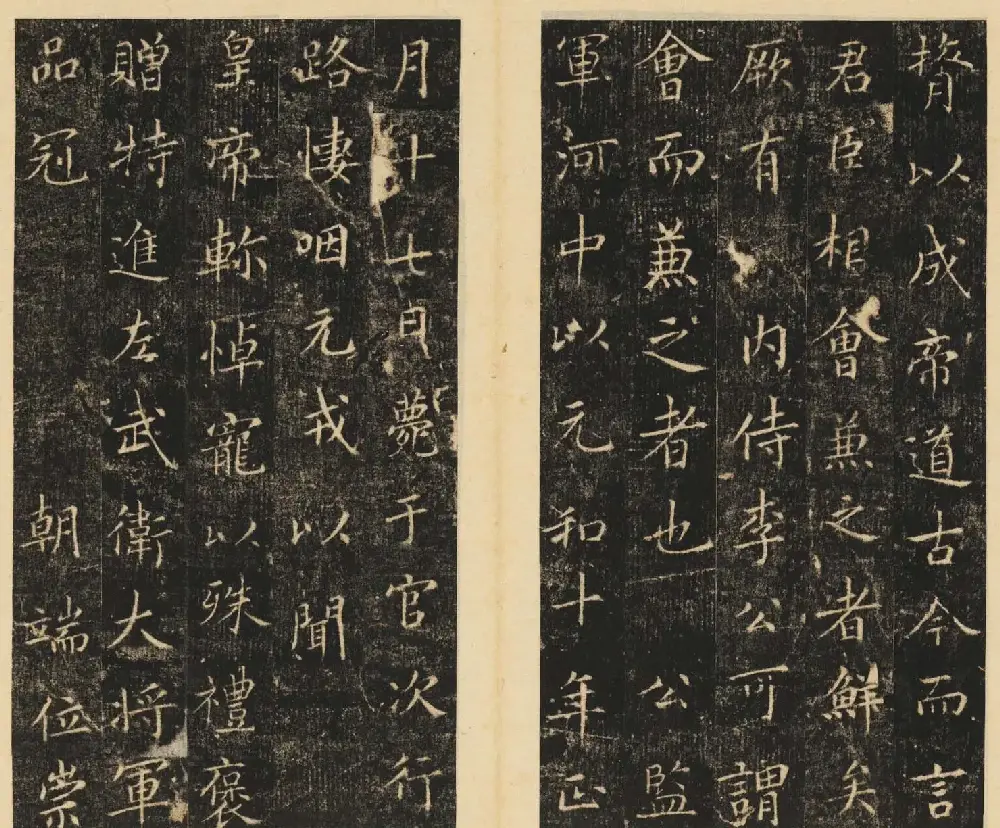 膂以成帝道古今而言
君臣相會兼之者鮮矣
厥有 內侍李公可謂
會而兼之者也 公監
軍河中以元和十年正
月廿七日薨于官次行
路悽咽元戎以聞
皇帝軫悼寵以殊禮褒
贈特進左武衛大將軍
品冠 朝端位崇